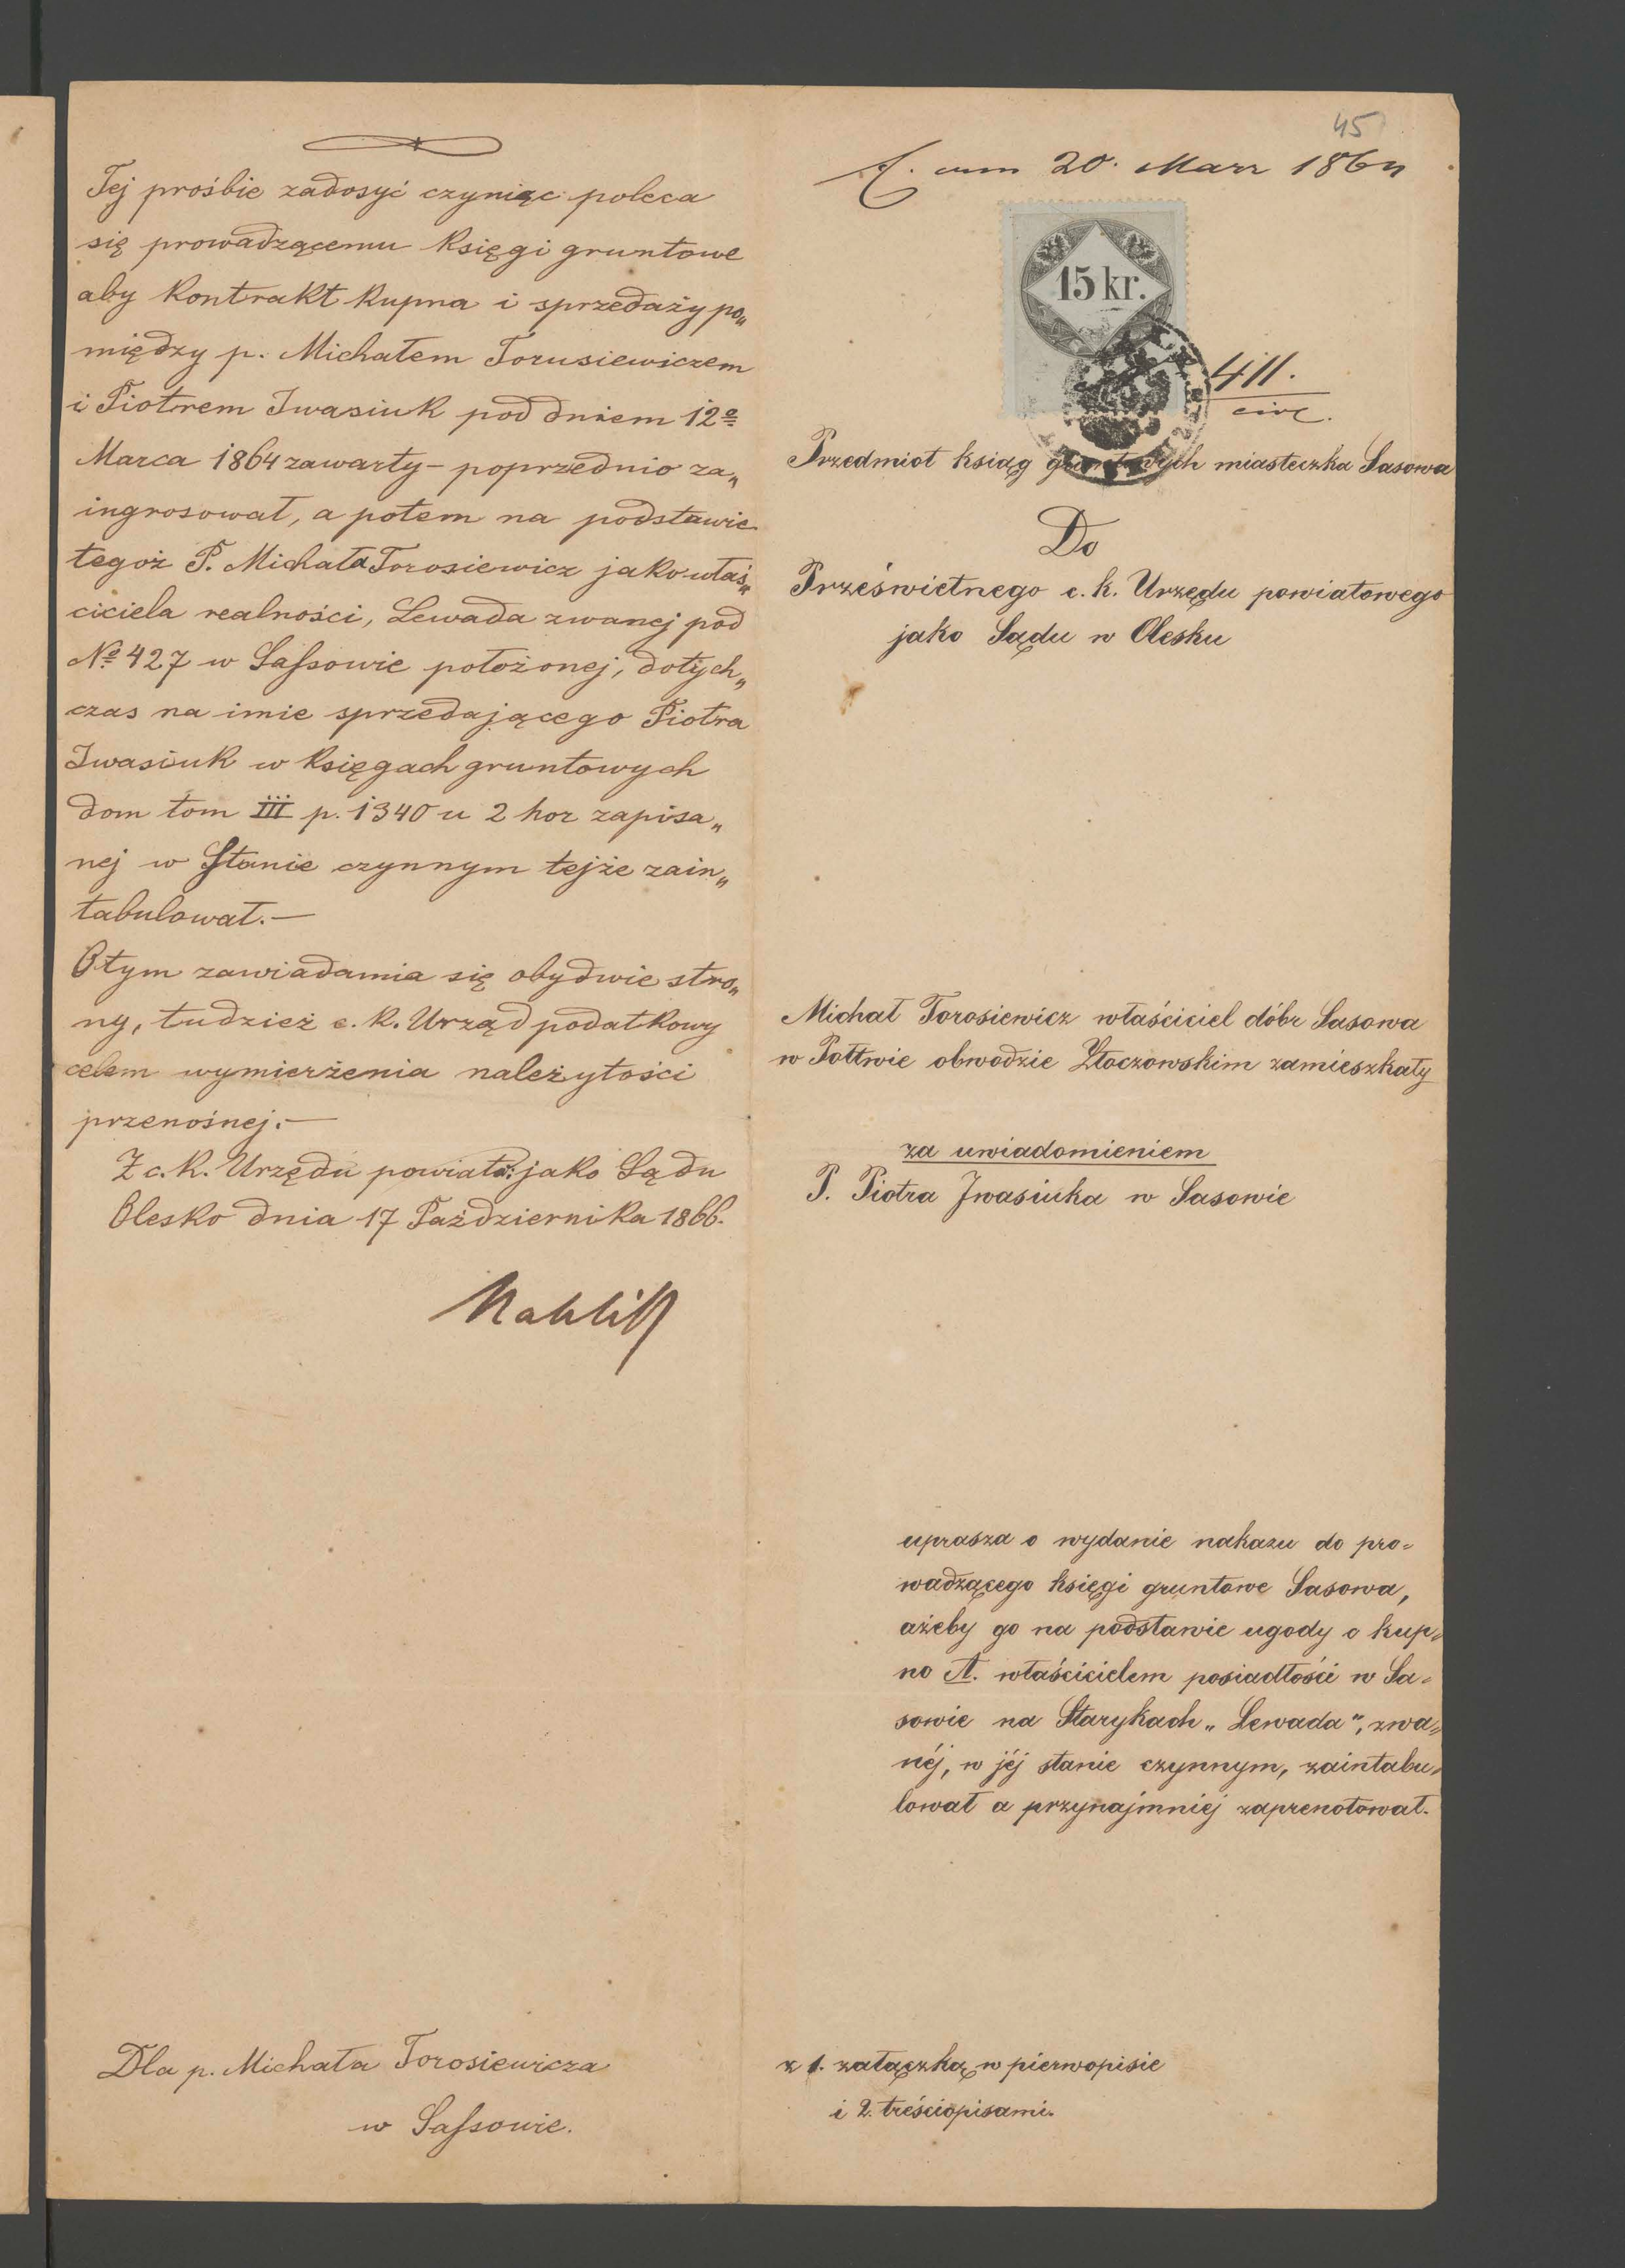 Tej prośbie zadosyć czyniąc poleca
się prowadzącemu Księgi gruntowe
aby Kontrakt Kupna i sprzedaży po„
między p. Michałem Torusiewiczem
i Piotrem Iwasiuk pod dniem 12o
Marca 1864 zawarty – poprzednio za„
ingrosował, a potem na podstawie
tegoż P. Michała Torosiewicz jako właś„
ciciela realności, Lewada zwanej pod
No 427 w Saſsowie położonej, dotych„
czas na imie sprzedającego Piotra
Iwasiuk w Księgach gruntowych
dom tom III p. 1340 u 2 hor zapisa„
nej w Stanie czynnym tejże zain„
tabulował.—
O tym zawiadamia się obydwie stro„
ny, tudzież c. K. Urząd podatkowy
celem wymierżenia należytości
przenośnej.—
Z c. K. Urzędu powiato: jako Sądu
Olesko dnia 17 Października 1866.
Dla p. Michała Torosiewicza
w Saſsowie.
45
20. Marz 1864
15 kr.
411.
civ.
Przedmiot ksiąg gruntowych miasteczka Sasowa
Do
Prześwietnego c. k. Urzędu powiatowego
jako Sądu w Olesku
Michał Torosiewicz właściciel dóbr Sasowa
w Połtwie obwodzie Złoczowskim zamieszkały
za uwiadomieniem
P. Piotra Jwasiuka w Sasowie
uprasza o wydanie nakazu do pro=
wadzącego księgi gruntowe Sasowa,
ażeby go na podstawie ugody o kup=
no A. właścicielem posiadłości w Sa=
sowie na Starykach „Lewada", zwa=
néj, w jéj stanie czynnym, zaintabu=
lował a przynajmniéj zaprenotował.
z 1. załączką w pierwopisie
i 2. treściopisami.